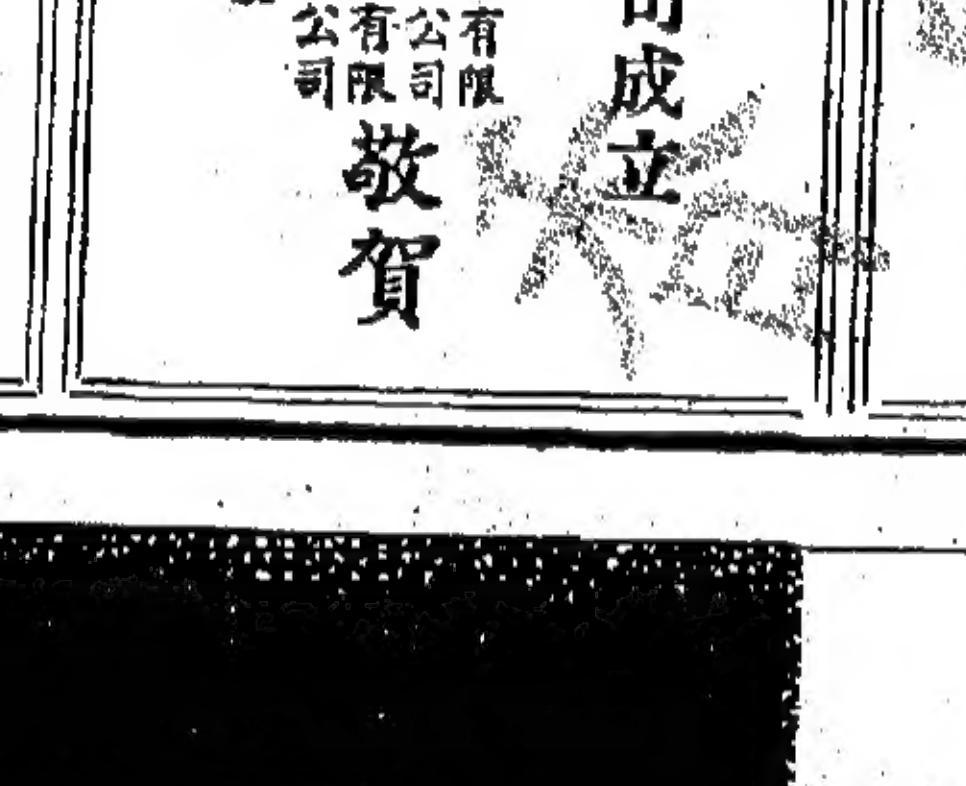 成立
有限
公司
有限
公司
敬賀